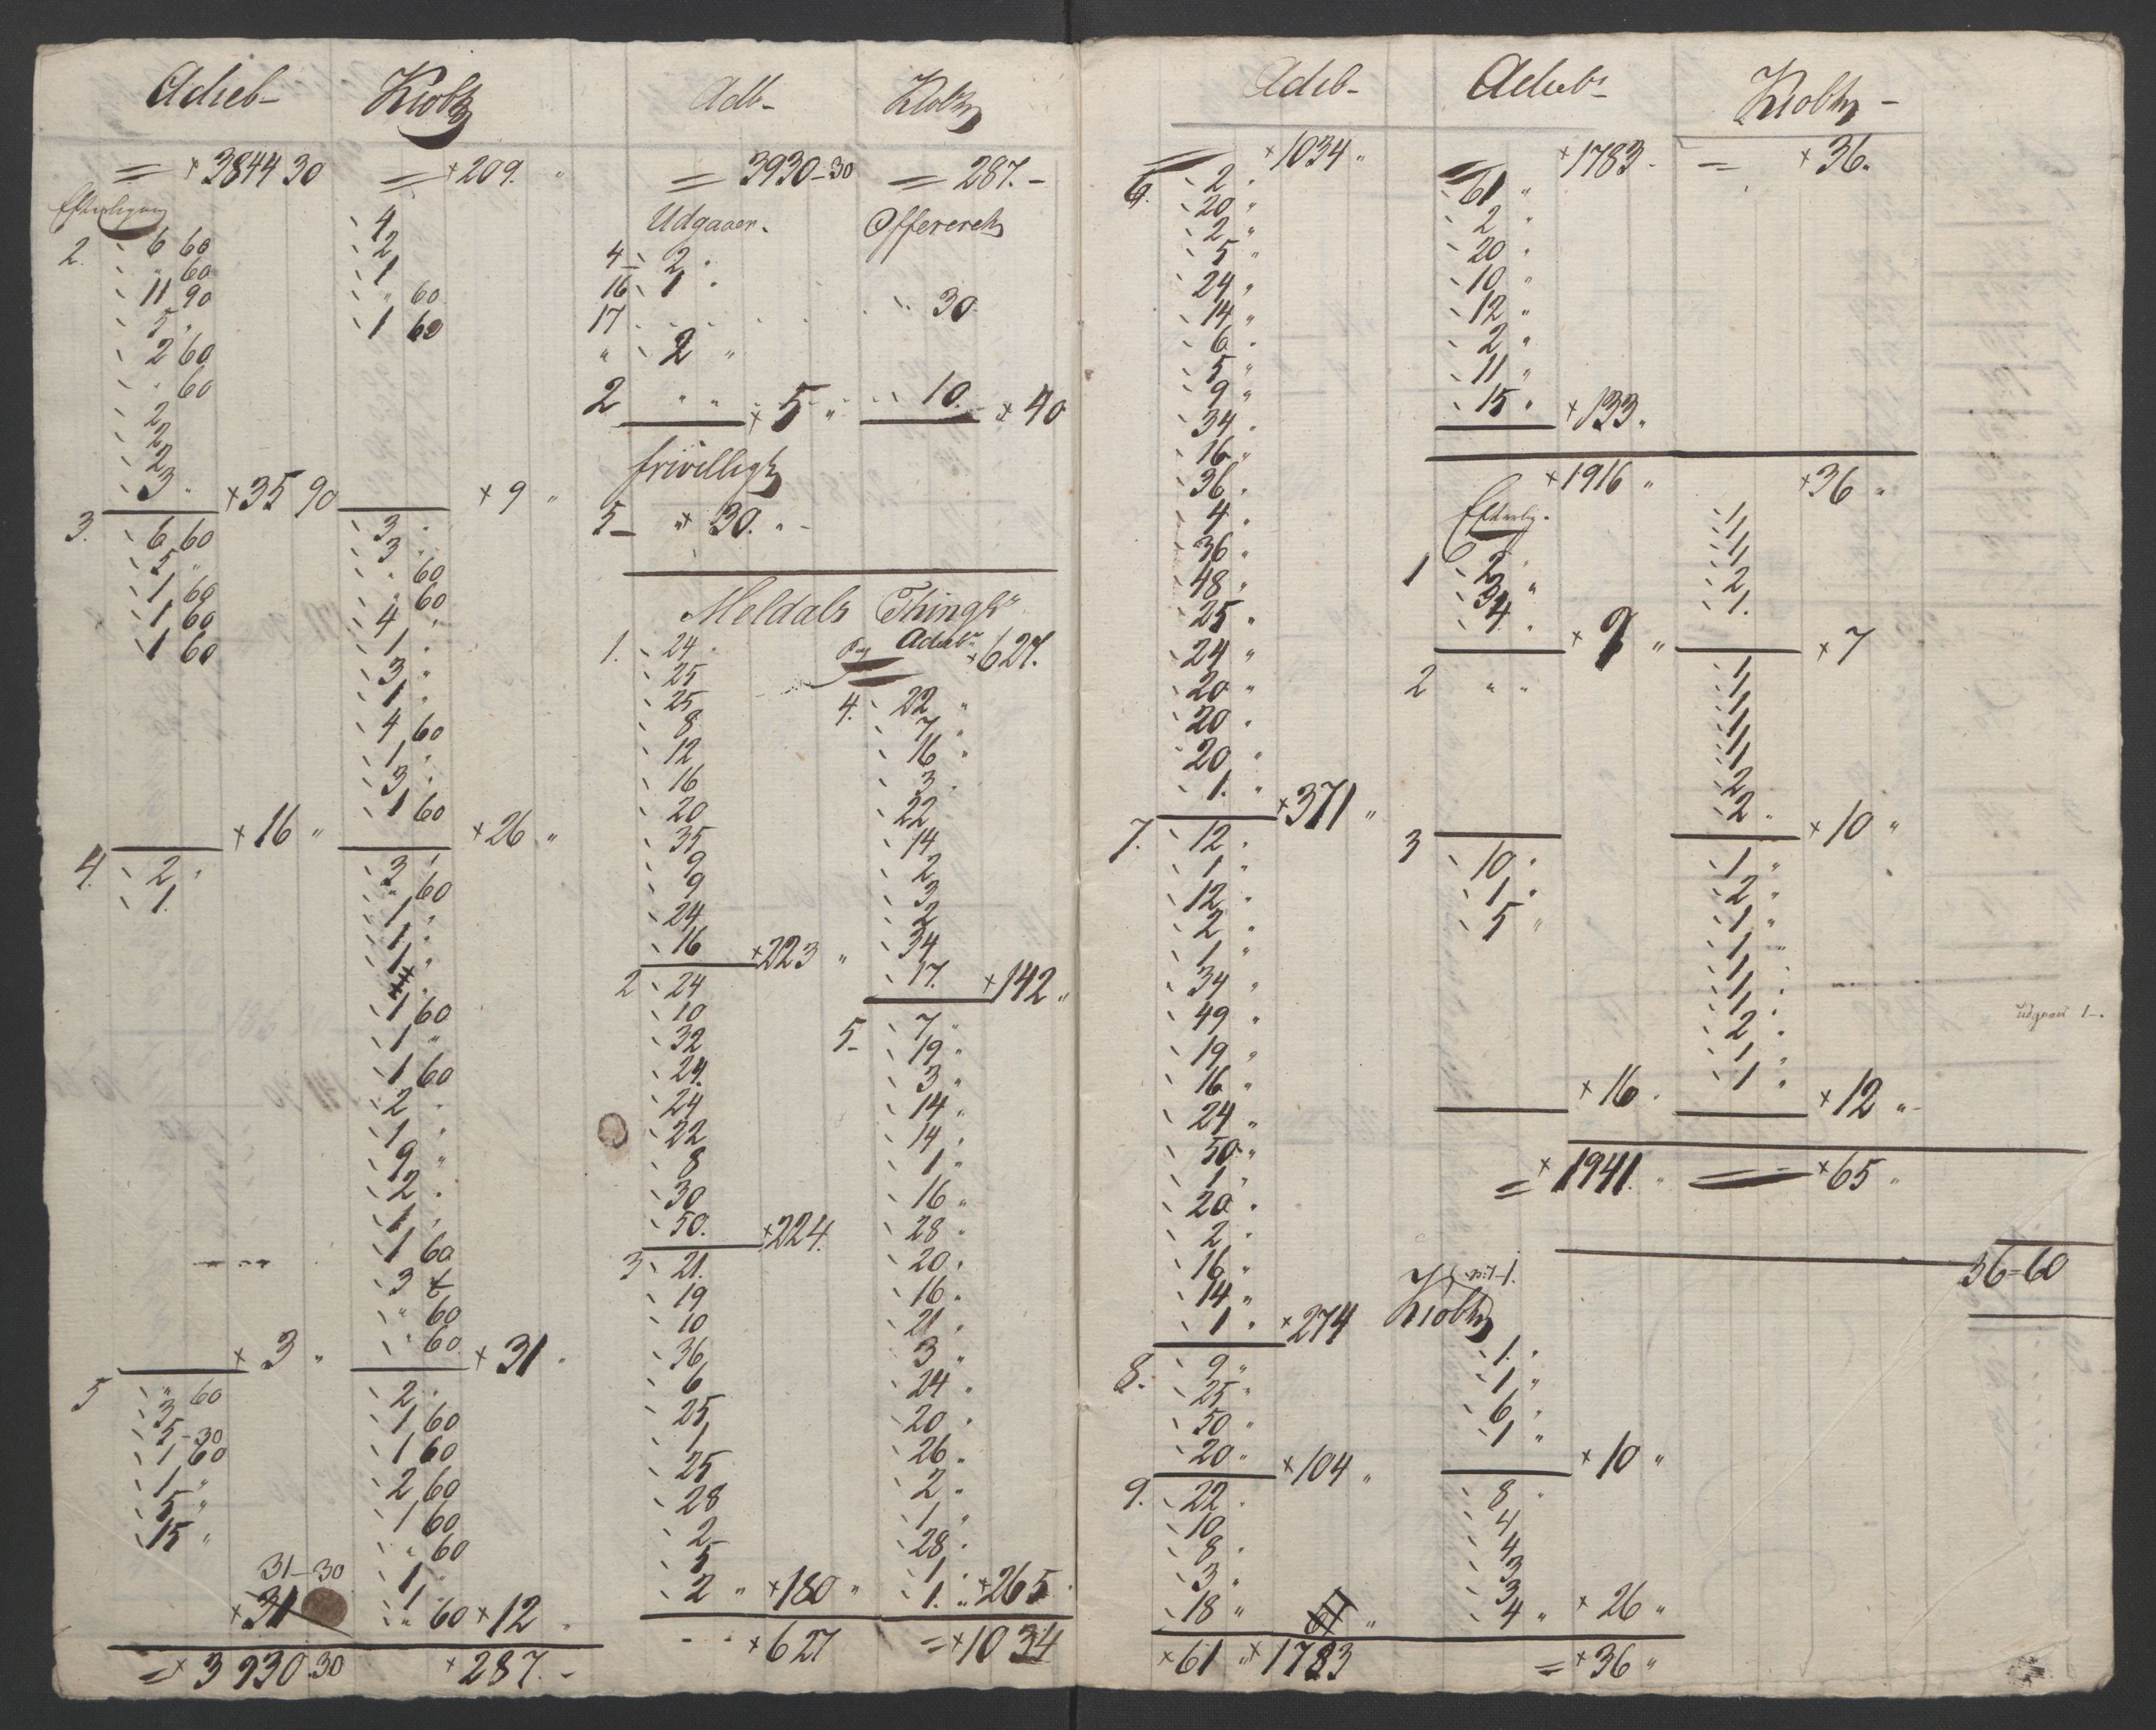 Adieb-
Kiobh
= + 3844 30
= + 209. "
Efterligning
2. 6 60
" 60
11 90
5 .
2 60
. 60
2
2
2
3 " + 35 90
4
2
1
" 60
1 60
+ 9 "
3. 6 60
5 "
1 60
1 60
1 60
+ 16 "
3 .
3 .
. 60
. 60
4 .
1 .
3 "
1 .
4 60
1 .
3 .
1 60
+ 26 "
4. 2 .
1.
+ 3 "
3 .
" 60
1 .
1 .
1 .
1 60
1 "
1 60
2 .
1 .
9 "
2 .
1 .
1 60
3
" 60
. 60
+ 31 "
5 " 60
3
5 - 30
1 60
1 "
5 "
15 "
31-30
+ 31
2 .
1 60
1 60
2 60
1 60
. 60
1 .
1
" 60 + 12
= + 3930.30
+ 287. -
Adb-
Kiobh
= 3930-30
= 287.-
Udgaaer.
Offererek
4- 2 .
16 1 .
17 . . . . 30
" 2 "
2 " " + 5 " 10. + 40
frivilligh
5- " + 30. "-
Meldals Thingh
1. 24 .
25
25
8
12
16
20
35
9
9
24
16 + 223 "
2 24
10
32
24.
24
22
8
30
50. + 224.
3 21.
19
10
36
6
25
1
25
28
2
5
2 " + 180 "
+ 627
Adieb + 627.
4. 22 "
7 "
16 "
3 .
22
14
2
3
2
34
17. + 142 "
5- 7 "
19 "
3 "
14 "
14 .
1 "
16 "
28 "
20 .
16 .
21 .
3 "
24 "
20 .
26 "
2 .
1 .
28 .
1
1. " + 265
= + 1034
Adeb-
Adieb-
Kiobh -
+ 1034 "
6. 2 .
20 "
2 "
5 "
24 "
14 "
6 .
5 "
9 "
34 .
16 "
36 .
4 .
36 .
48 .
25 .
24 "
20 "
20 .
20 .
1. " + 371 "
7. 12 .
1 "
12 .
2 .
1 "
34 "
49 "
19 "
16 "
24 "
50 "
1 "
20 .
2 .
16 "
14 "
1 . + 274
8. 9 "
25 "
50 "
20 " + 104 "
9. 22 .
10 .
8 .
3 .
18 "
+ 61 "
+ 1783
+ 1783 .
61 "
2 "
20 .
10 "
12 "
2 "
11 "
15 . + 133.
= + 36.
+ 1916 "
+ 36 "
Efterlig.
1 2 .
3 "
4 .
+ 9 "
1
1
1
2
1.
+ 7
2 " "
1
1
1
1
1
1
2
2 . + 10 "
3 10 .
1 .
5 "
+ 16 .
1 "
2 "
1 "
1 "
1 .
1 .
2 .
1 .
1 . + 12 "-
udgaaer 1-.
= + 1941. "
+ 65 "
36=60
Kiobh
1. .
1 "
6 .
1 "
+ 10 "
8 .
4
4
3
3
4 " + 26 "
= + 36 "